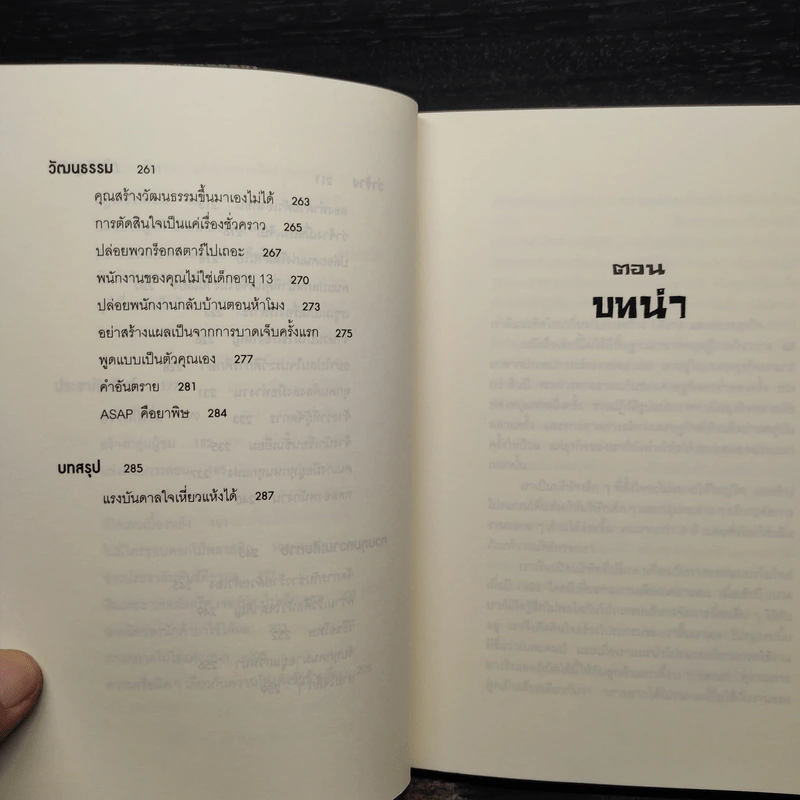 วัฒนธรรม 261
คุณสร้างวัฒนธรรมขึ้นมาเองไม่ได้ 263
การตัดสินใจเป็นแค่เรื่องชั่วคราว 265
ปล่อยพวกร็อกสตาร์ไปเถอะ 267
พนักงานของคุณไม่ใช่เด็กอายุ 13 270
ปล่อยพนักงานกลับบ้านตอนห้าโมง 273
อย่าสร้างแผลเป็นจากการบาดเจ็บครั้งแรก 275
พูดแบบเป็นตัวคุณเอง 277
คำอันตราย 281
ASAP คือยาพิษ 284
บทสรุป 285
แรงบันดาลใจเหี่ยวแห้งได้ 287
ตอน
บทนำ